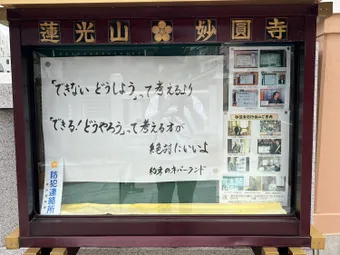 蓮光山 妙圓寺
「できない どうしよう」って考えるより
「できる！どうやろう」って考える方が
絶対にいいよ
約束のネバーランド
防犯連絡所